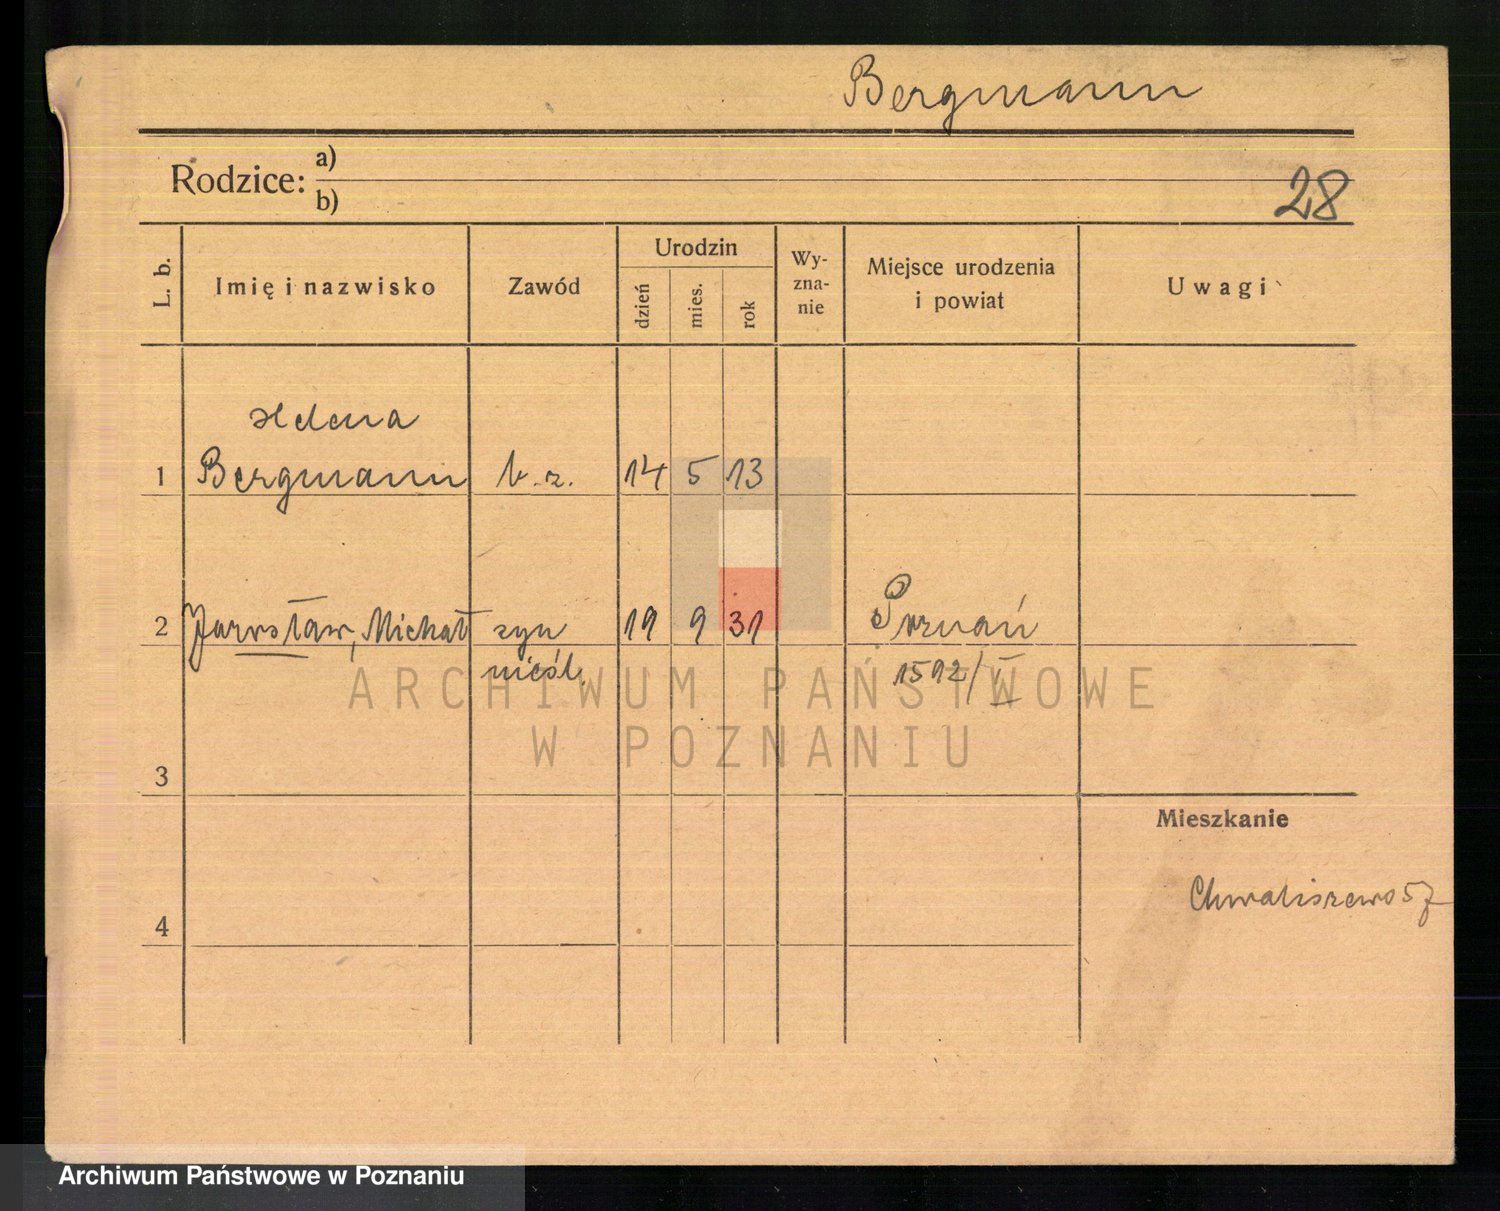 Bergmann
Rodzice: a)
b)
28
L. b.
Imię i nazwisko
Zawód
Urodzin
dzień mies. rok
Wy-
zna-
nie
Miejsce urodzenia
i powiat
Uwagi
Helena
1 Bergmann b. z. 14 5 13
2 Jarosław, Michał syn 19 9 31 Poznań
nieśl. 1592/II
ARCHIWUM PAŃSTWOWE
W POZNANIU
3
Mieszkanie
Chwaliszewo 57
4
Archiwum Państwowe w Poznaniu